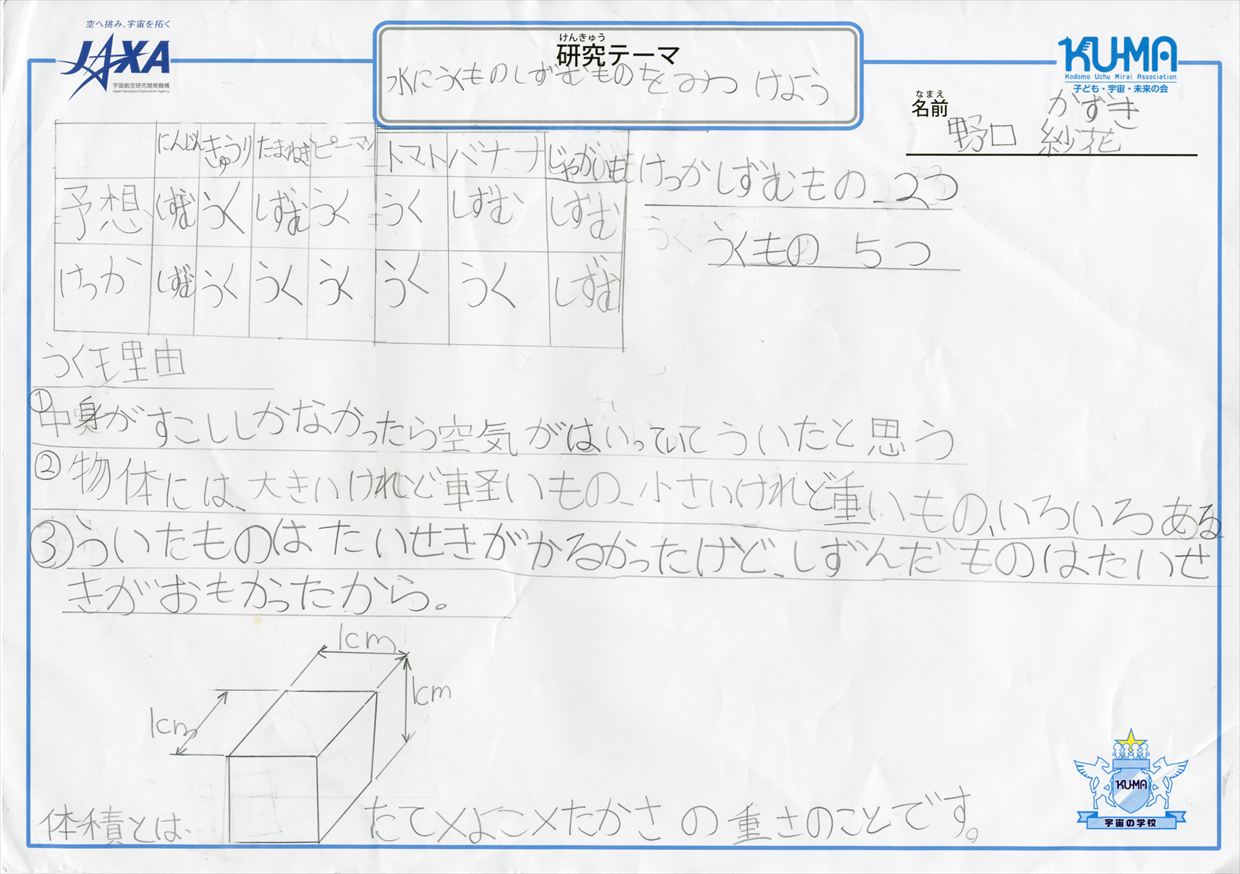 空へ挑み、宇宙を拓く
JAXA
宇宙航空研究開発機構
Japan Aerospace Exploration Agency
けんきゅう
研究テーマ
水にうくものしずむものをみつけよう
KU-MA
Kodomo Uchu Mirai Association
子ども・宇宙・未来の会
なまえ
名前
かずき
野口 紗花
にんじん きゅうり たまねぎ ピーマン トマト バナナ じゃがいも
予想 しずむ うく しずむ うく うく しずむ しずむ
けっか しずむ うく うく うく うく うく しずむ
けっか しずむもの 2つ
うくもの 5つ
うく理由
①中身がすこししかなかったら空気がはいっていてういたと思う
②物体には、大きいけれど軽いもの、小さいけれど重いもの、いろいろある
③ういたものはたいせきがかるかったけど、しずんだものはたいせ
きがおもかったから。
1cm
1cm
1cm
体積とは、 たて×よこ×たかさの重さのことです。
KU-MA
宇宙の学校